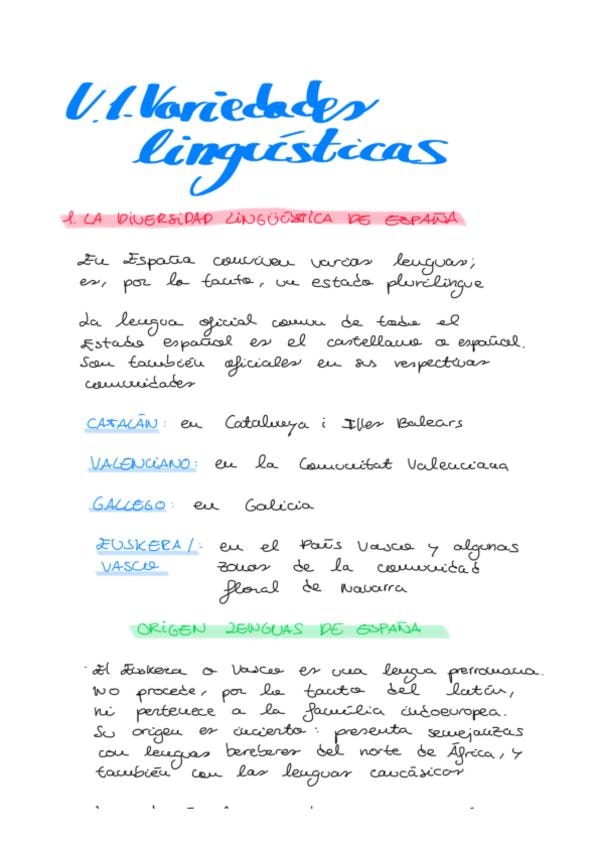 U.1.Variedades
lingüísticas
1. LA DIVERSIDAD LINGÜÜSTICA DE ESPAÑA
En España conviven varias lenguas;
es, por lo tanto, un estado plurilingüe
La lengua oficial comun de todo el
Estado español es el castellano o español.
Son también oficiales en sus respectivas
comunidades
CATALÁN: en Catalunya i Illes Balears
VALENCIANO: en la Comunitat Valenciana
GALLEGO: en Galicia
EUSKERA/: en el País Vasco y algunas
VASCO zonas de la comunidad
floral de Navarra
ORIGEN LENGUAS DE ESPAÑA
· El Euskera o Vasco es una lengua perromana.
No procede, por lo tanto del latín,
ni pertenece a la família indoeuropea.
Su origen es incierto: presenta semejanzas
con lenguas bereberes del norte de África, y
también con las lenguas caucásicas